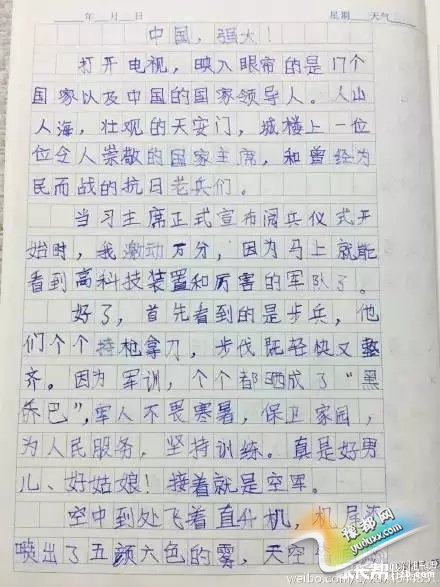 年 月 日 星期 天气
中国，强大！
打开电视，映入眼帘的是17个
国家以及中国的国家领导人。人山
人海，壮观的天安门，城楼上一位
位令人崇敬的国家主席，和曾经为
民而战的抗日老兵们。
当习主席正式宣布阅兵仪式开
始时，我激动万分，因为马上就能
看到高科技装置和厉害的军队了。
好了，首先看到的是步兵，他
们个个持枪拿刀，步伐既轻快又整
齐。因为军训，个个都晒成了“黑
乔巴”，军人不畏寒暑，保卫家园，
为人民服务，坚持训练。真是好男
儿、好姑娘！接着就是空军。
空中到处飞着直升机，机尾
喷出了五颜六色的雾，天空
豫都网
yuduxx.com
weibo.com/